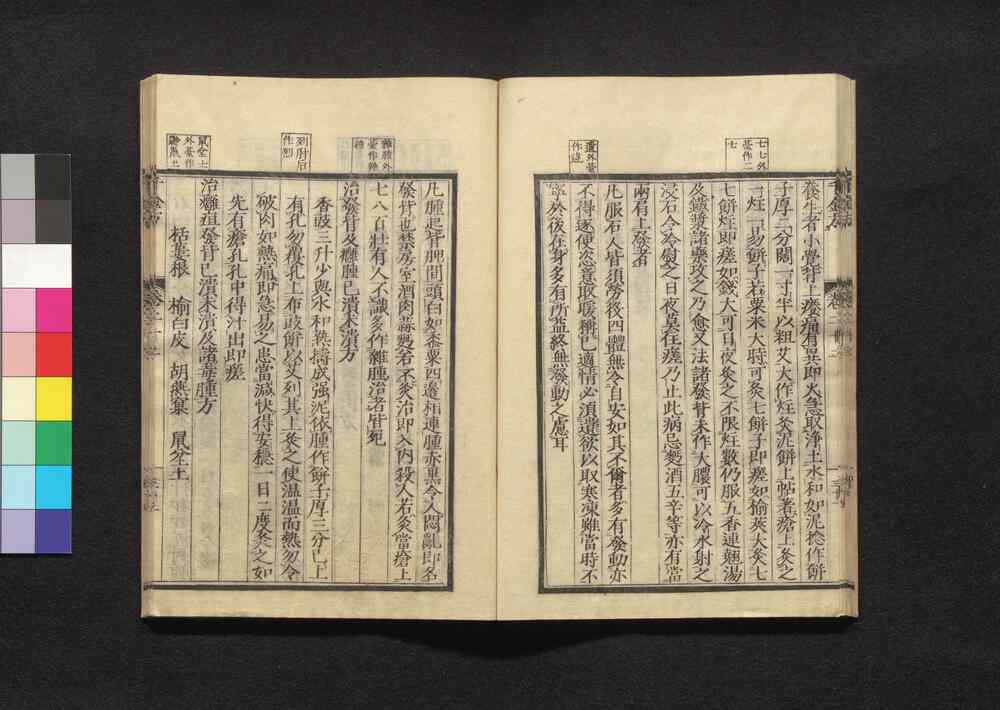 養生者小覺背上癢痛有異即火急取淨土水和如泥捻作餅
子厚二分闊一寸半以粗艾大作炷灸泥餅上帖著瘡上灸之
一炷一易餅子若粟米大時可灸七餅子即瘥如榆莢大灸七
七餅炷即瘥如錢大可日夜灸之不限炷數仍服五香連翹湯
及鐵漿諸藥攻之乃愈又法諸發背未作大膿可以冷水射之
浸石令冷熨之日夜莫住瘥乃止此病忌麪酒五辛等亦有當
兩肩上發者
凡服石人皆須勞役四體無令自安如其不爾者多有發動亦
不得逐便恣意取暖稱己適情必須遺欲以取寒凍雖當時不
寧於後在身多有所益終無發動之慮耳
七七外
臺作二
七
遺外臺
作違
凡腫起背胛間頭白如黍粟四邊相連腫赤黑令人悶亂即名
發背也禁房室酒肉蒜麪若不灸治即入內殺人若灸當瘡上
七八百壯有人不識多作雜腫治者皆死
治發背及癰腫已潰未潰方
香豉三升少與水和熟擣成强泥依腫作餅子厚三分已上
有孔勿覆孔上布豉餅以艾列其上灸之使溫溫而熱勿令
破肉如熱痛即急易之患當減快得安穩一日二度灸之如
先有瘡孔孔中得汁出即瘥
治癰疽發背已潰未潰及諸毒腫方
栝蔞根　榆白皮　胡燕窠　鼠坌土
列肘后
作烈
鼠坌土
外臺作